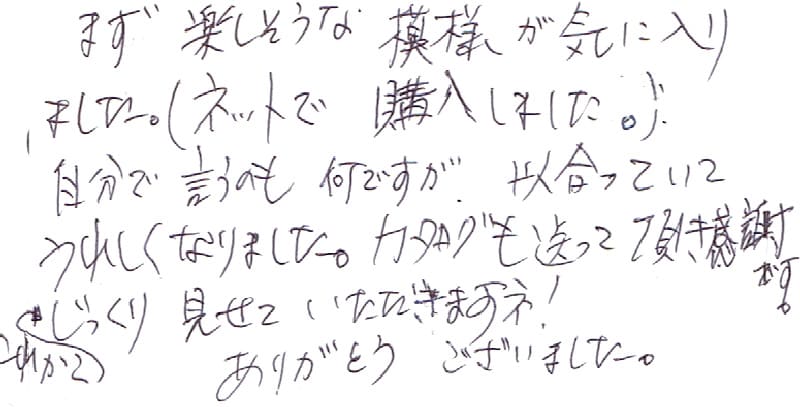 まず 楽しそうな 模様が気に入り
ました。(ネットで 購入しました。)
自分で言うのも何ですが、以合っていて
うれしくなりました。カタログも送って頂き感謝
です。
じっくり見せていただきますネ!
これから
ありがとうございました。